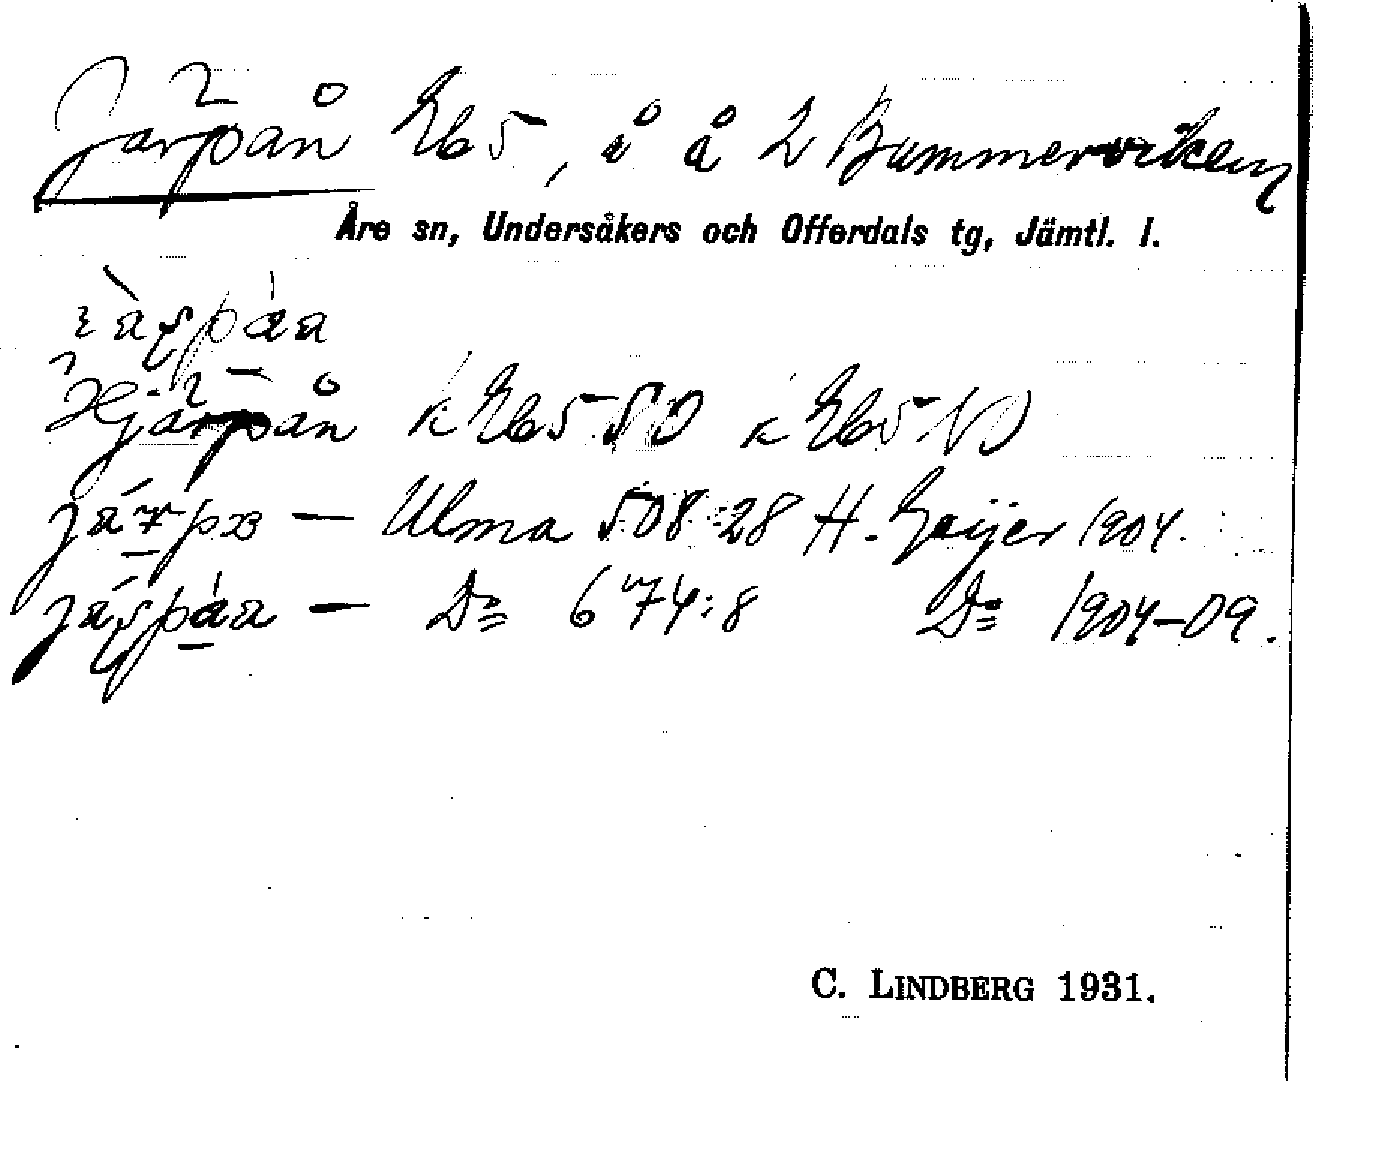 Järpån Eb5, i å å 2 Bummerviken
Åre sn, Undersåkers och Offerdals tg, Jämtl. l.
Hjärpån k Eb5 SO k Eb5 NO
— Ulma 508:28 H. Geijer 1904.
— Do 674:8 Do 1904–09.
C. LINDBERG 1931.